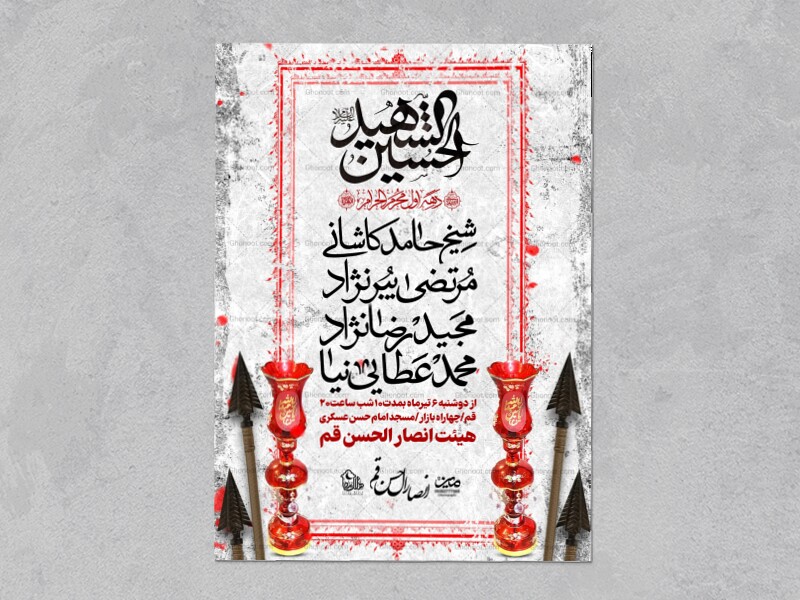 الحسین الشهید
دهه اول محرم الحرام
شیخ حامد کاشانی
مرتضی ببرنژاد
مجید رضانژاد
محمد عطایی نیا
از دوشنبه ۶ تیرماه بمدت ۱۰ شب ساعت ۲۰
قم/چهاراه بازار/مسجد امام حسن عسکری
هیئت انصار الحسن قم
انصار الحسن قم